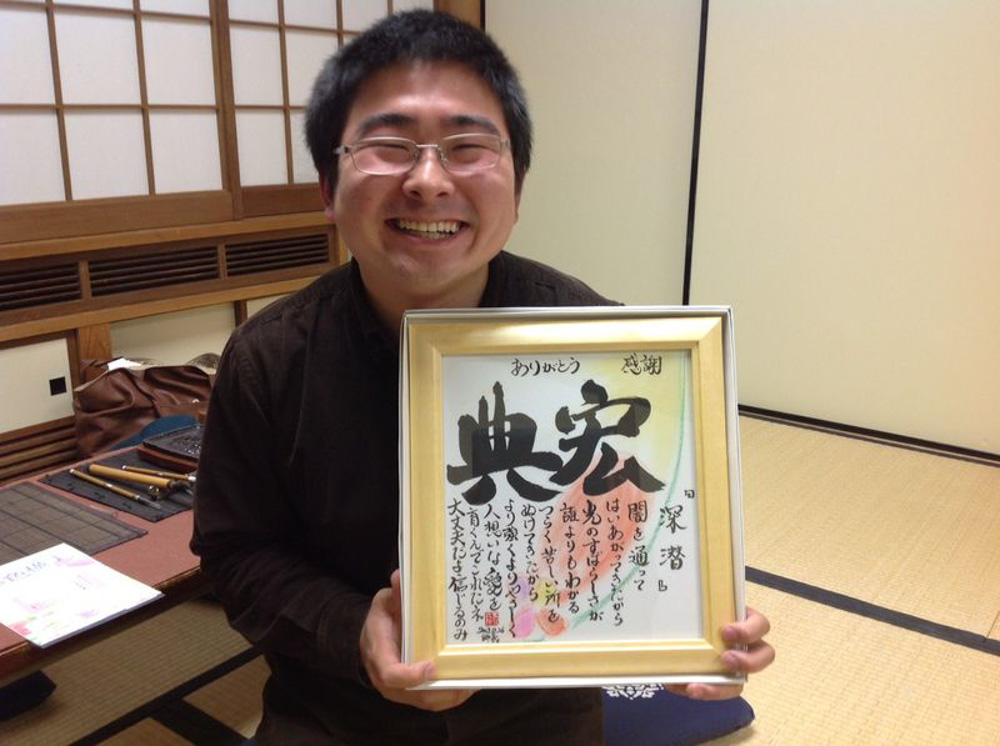 ありがとう 感謝
宏典
『深潜』
闇を通って
はいあがってきたから
光のすばらしさが
誰よりもわかる
つらく苦しい所を
ぬけてきたから
よりやさしく
人想いな愛を
育くんでこれたネ
大丈夫だよ信じるのみ